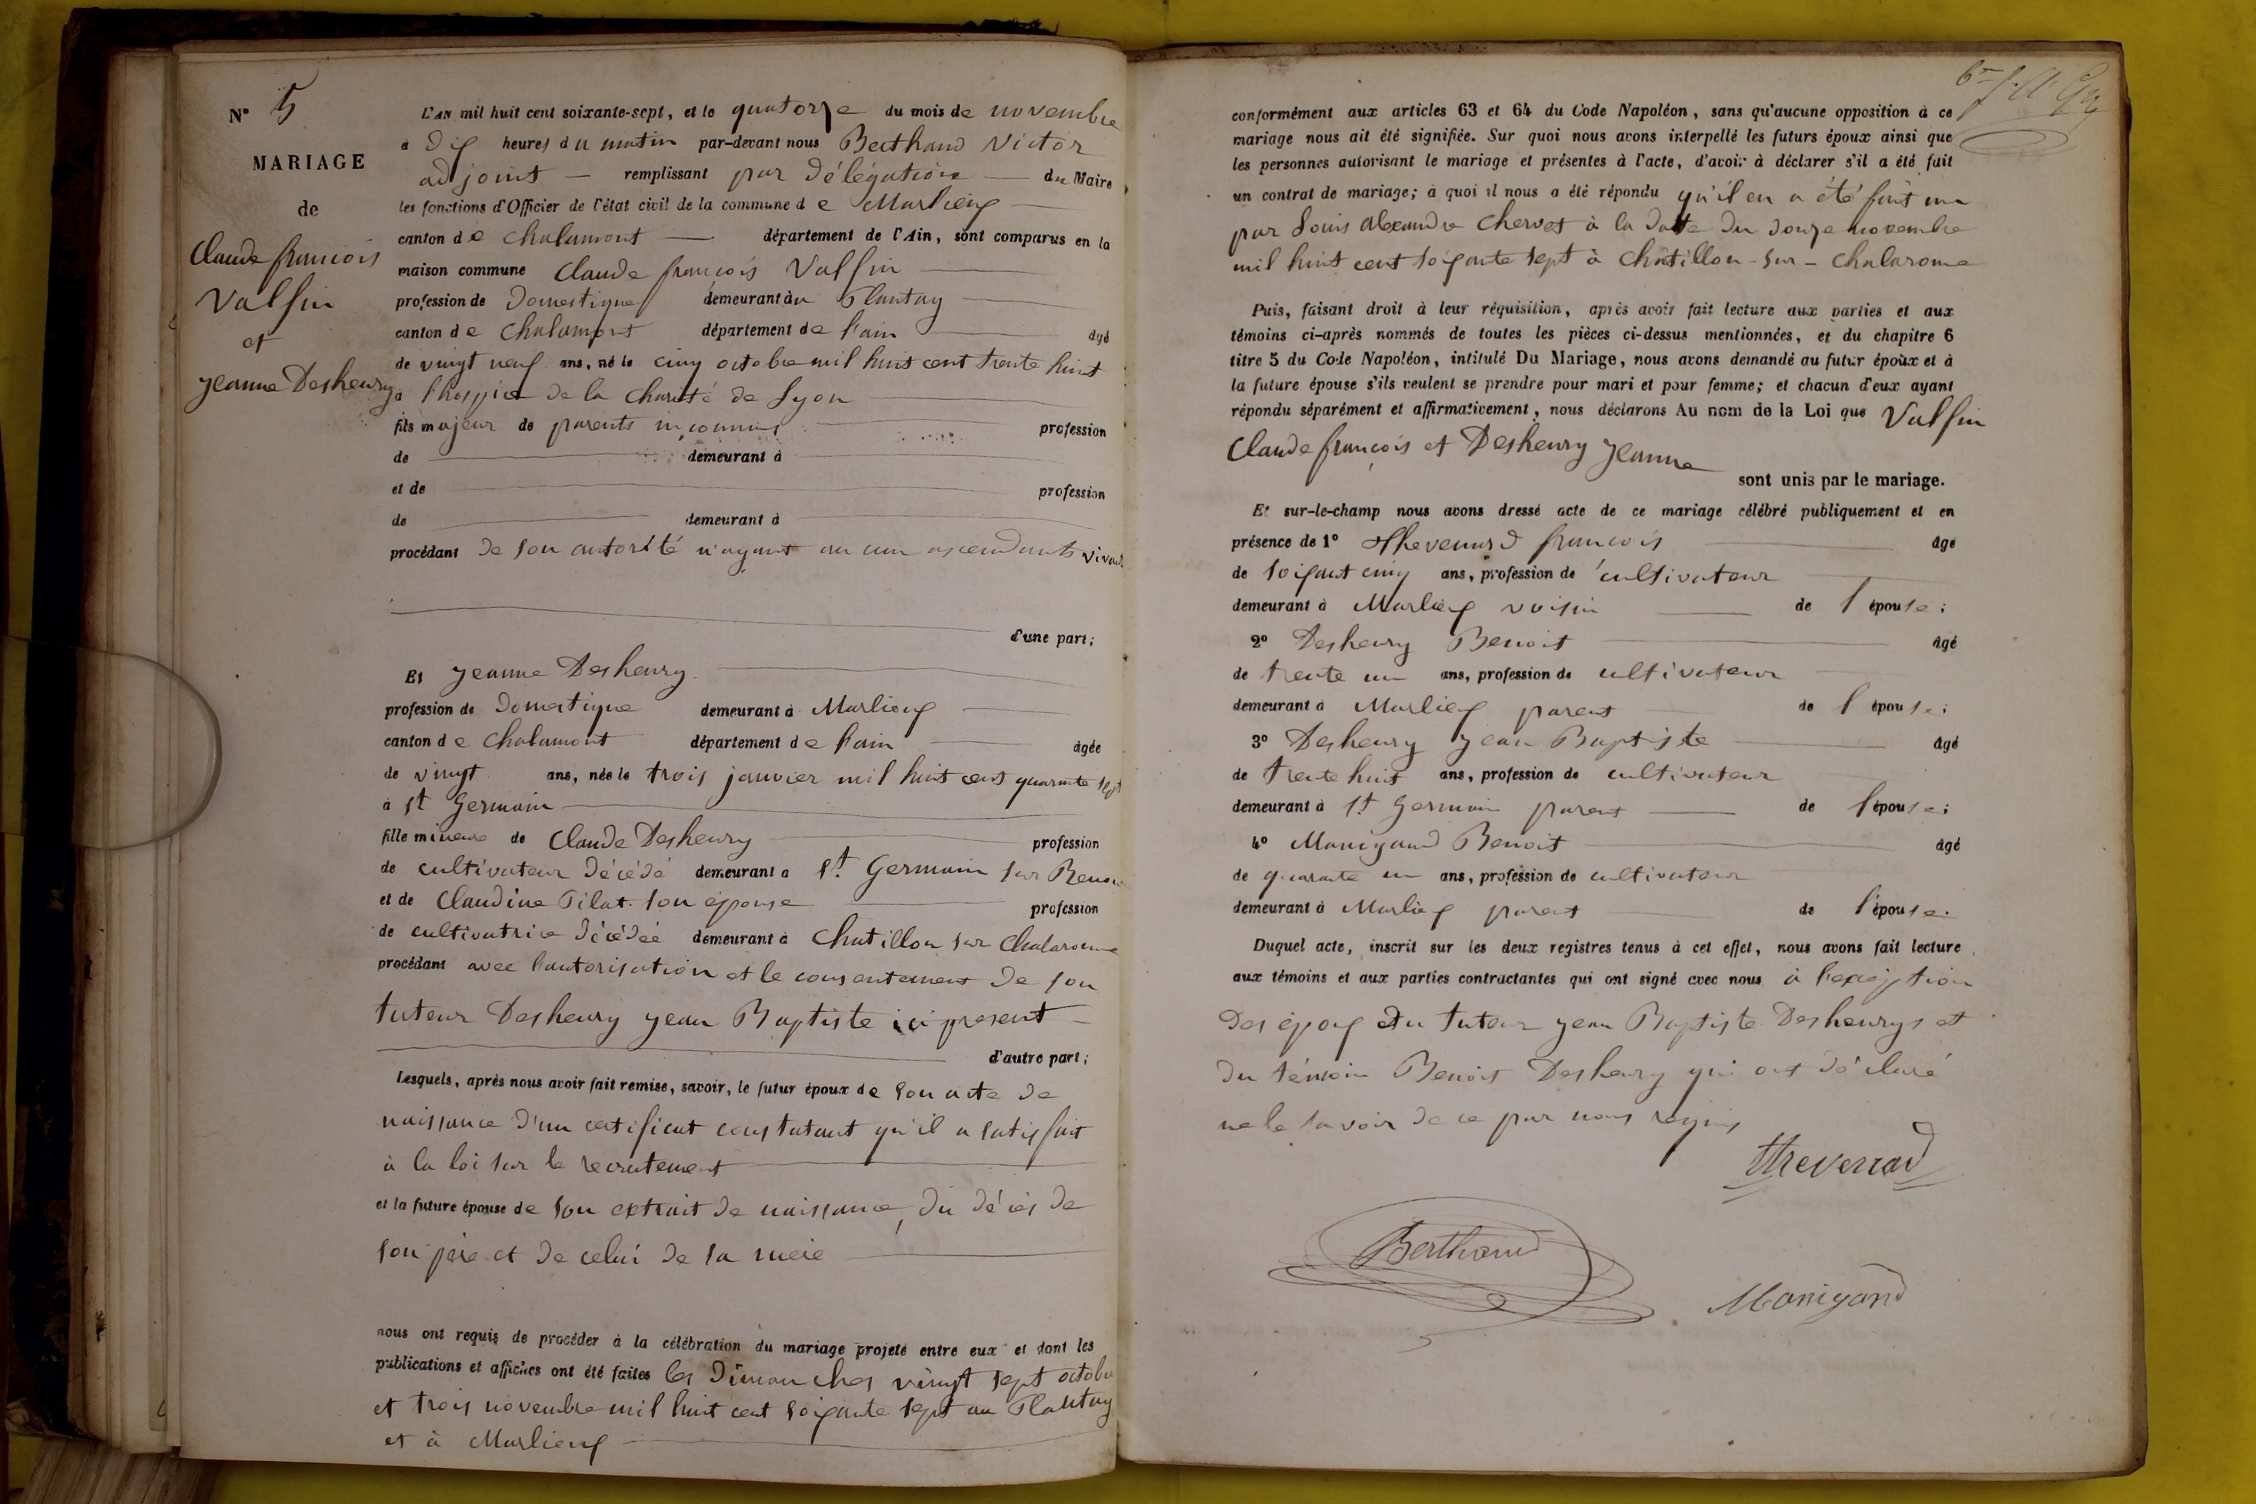 N° 5
MARIAGE
de
Claude françois
Valfin
et
Jeanne Desheury
L'AN mil huit cent soixante-sept, et le quatorze du mois de novembre
à dix heures du matin par-devant nous Berthaud Victor
adjoint — remplissant par délégation — du Maire
les fonctions d'Officier de l'état civil de la commune de Marlieux
canton de Chalamont — département de l'Ain, sont comparus en la
maison commune Claude françois Valfin
profession de Domestique demeurant au Plantay
canton de Chalamont département de l'ain âgé
de vingt neuf ans, né le cinq octobre mil huit cent trente huit
à l'hospice de la charité de Lyon
fils majeur de parents inconnus profession
de demeurant à
et de profession
de demeurant à
procédant de son autorité n'ayant aucun ascendants vivant
d'une part;
Et Jeanne Desheury
profession de Domestique demeurant à Marlieux
canton de Chalamont département de l'ain âgée
de vingt ans, née le trois janvier mil huit cent quarante sept
à st Germain
fille mineure de Claude Desheury profession
de cultivateur décédé demeurant à st Germain sur Renon
et de Claudine Pilat son épouse profession
de cultivatrice décédée demeurant à Chatillon sur Chalaronne
procédant avec l'autorisation et le consentement de son
tuteur Desheury Jean Baptiste ici present
d'autre part;
Lesquels, après nous avoir fait remise, savoir, le futur époux de son acte de
naissance d'un certificat constatant qu'il a satisfait
à la loi sur le recrutement
et la future épouse de son extrait de naissance, du décès de
son père et de celui de sa mère
nous ont requis de procéder à la célébration du mariage projeté entre eux et dont les
publications et affiches ont été faites les dimanches vingt sept octobre
et trois novembre mil huit cent soixante sept au Plantay
et à Marlieux
conformément aux articles 63 et 64 du Code Napoléon, sans qu'aucune opposition à ce
mariage nous ait été signifiée. Sur quoi nous avons interpellé les futurs époux ainsi que
les personnes autorisant le mariage et présentes à l'acte, d'avoir à déclarer s'il a été fait
un contrat de mariage; à quoi il nous a été répondu qu'il en a été fait un
par Louis Alexandre Chervet à la datte du douze novembre
mil huit cent soixante sept à Châtillon-sur-Chalarone
Puis, faisant droit à leur réquisition, après avoir fait lecture aux parties et aux
témoins ci-après nommés de toutes les pièces ci-dessus mentionnées, et du chapitre 6
titre 5 du Code Napoléon, intitulé Du Mariage, nous avons demandé au futur époux et à
la future épouse s'ils veulent se prendre pour mari et pour femme; et chacun d'eux ayant
répondu séparément et affirmativement, nous déclarons Au nom de la Loi que Valfin
Claude françois et Desheury Jeanne
sont unis par le mariage.
Et sur-le-champ nous avons dressé acte de ce mariage célébré publiquement et en
présence de 1° Thevenard françois âgé
de soixant cinq ans, profession de cultivateur
demeurant à Marlieux voisin de l'épouse;
2° Desheury Benoit âgé
de trente un ans, profession de cultivateur
demeurant à Marlieux parent de l'épouse;
3° Desheury Jean Baptiste âgé
de trente huit ans, profession de cultivateur
demeurant à st Germain parent de l'épouse;
4° Manigand Benoit âgé
de quarante un ans, profession de cultivateur
demeurant à Marlieux parent de l'épouse.
Duquel acte, inscrit sur les deux registres tenus à cet effet, nous avons fait lecture
aux témoins et aux parties contractantes qui ont signé avec nous à l'exception
des époux et du tuteur Jean Baptiste Desheurys et
du témoin Benoit Desheury qui ont déclaré
ne le savoir de ce par nous requis
Thevenard
Berthaud
Manigand